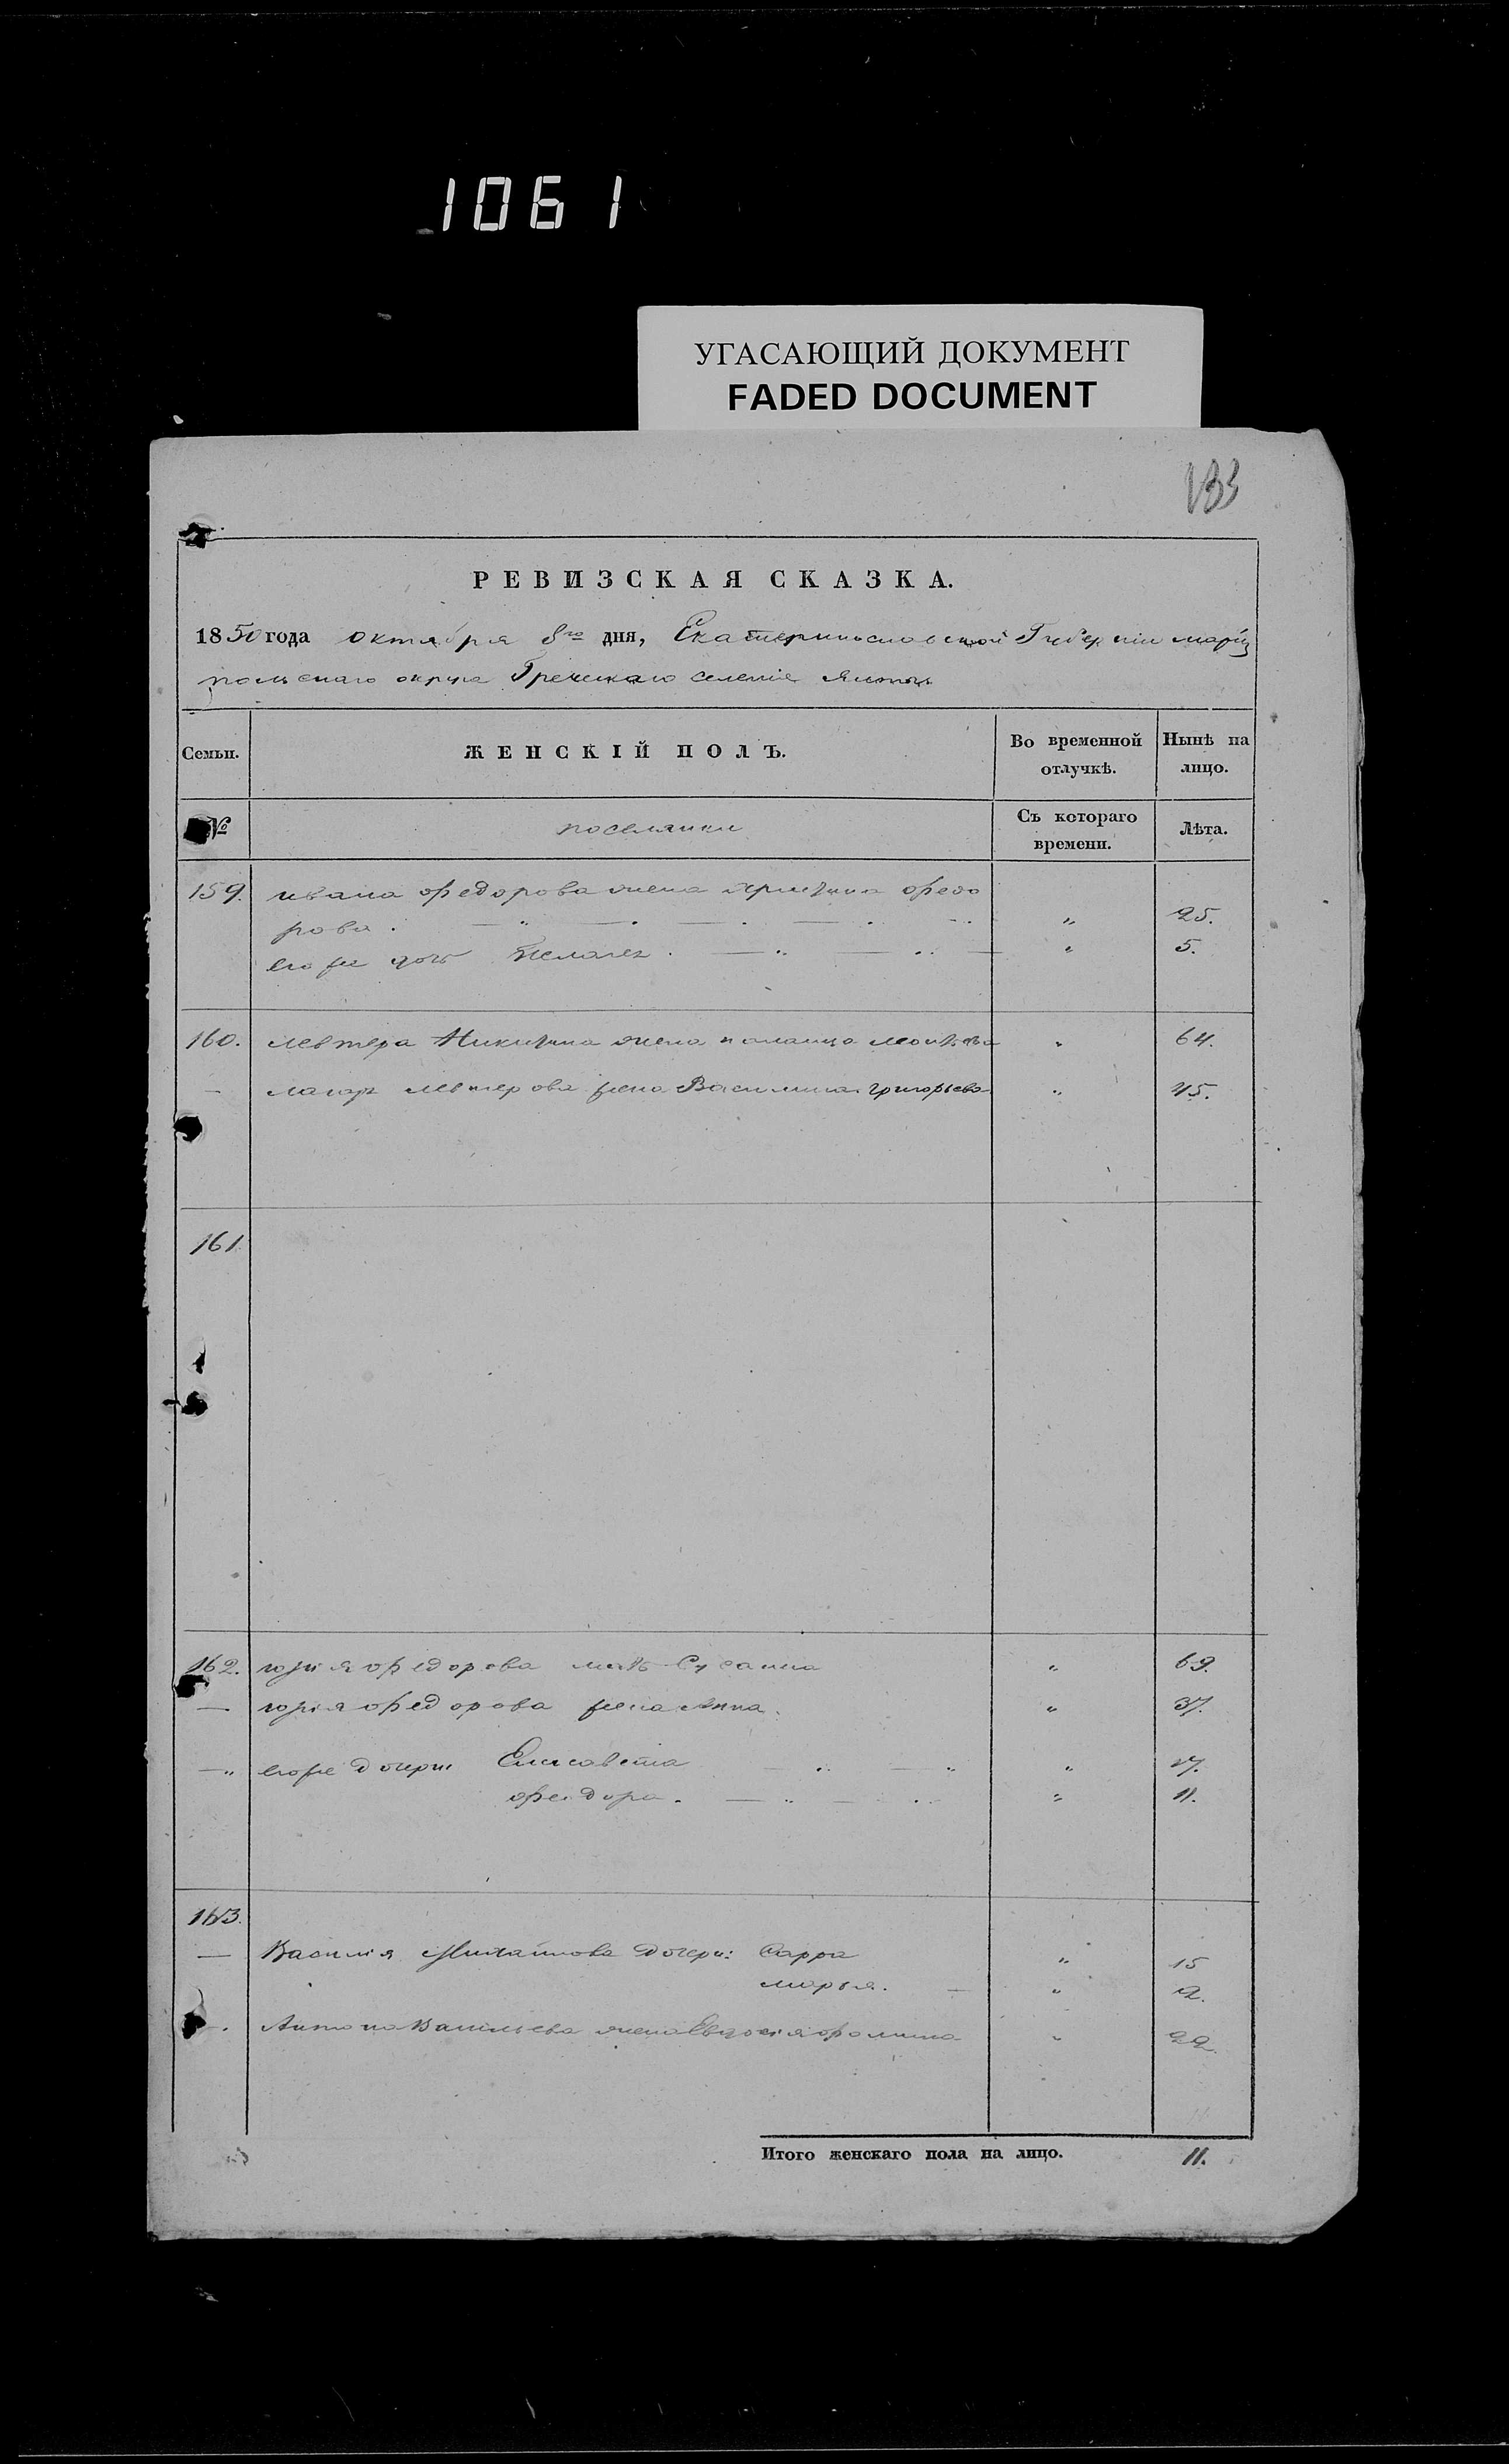 1061
УГАСАЮЩИЙ ДОКУМЕНТ
FADED DOCUMENT
133
РЕВИЗСКАЯ СКАЗКА.
1850 года октября 8го дня, Екатеринославской Губерніи мариу
польскаго округа Греческаго селенія Ялты
Семьи.
ЖЕНСКІЙ ПОЛЪ.
Во временной отлучкѣ.
Нынѣ на лицо.
№
поселянки
Съ котораго времени.
Лѣта.
159. ивана федорова жена федо
рова. " 25.
его же дочь Пелагея. " 5.
160. левтера Никитина жена " 64.
— лазаря левтерова жена Василиса григорьева " 45.
161
162. юрія федорова мать Сусанна " 69.
— юрія федорова жена Анна. " 37.
—" егоже дочери Елисавета " 17.
феодора. " 11.
163.
— Василія Михайлова дочери: Сарра " 15
марья. " 2.
—. Антона Васильева жена Евдокія фомина " 22.
Итого женскаго пола на лицо. 11.